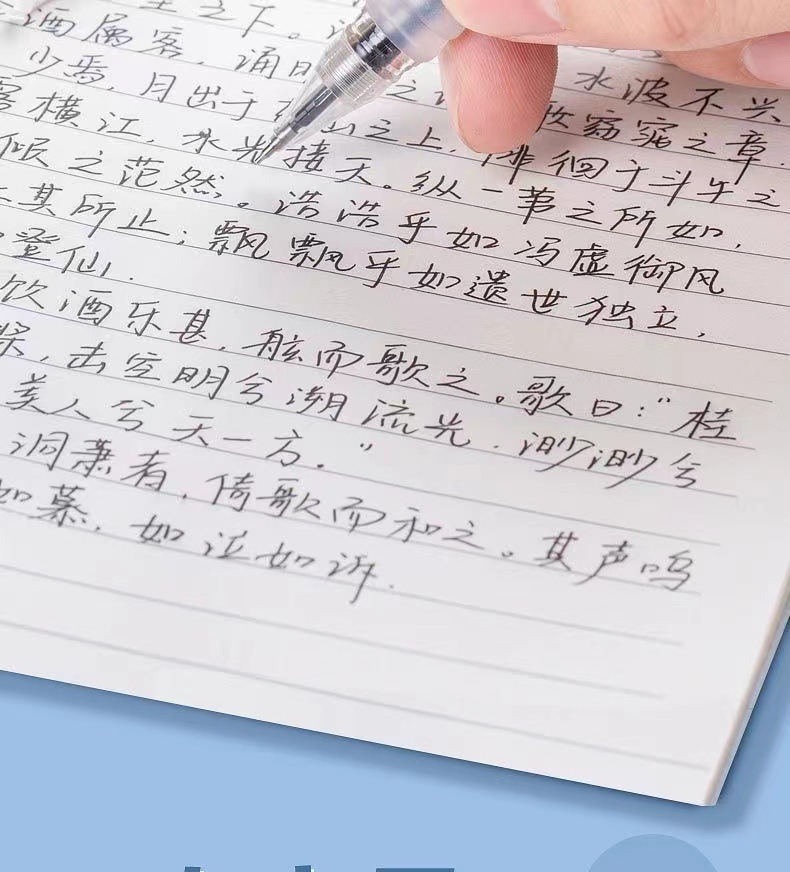 之下。 水波不兴
酒属客,诵 之 窈窕之章.
少焉,月出于 山之上,徘徊于斗牛之
横江,水光接天。纵一苇之所如,
倾之茫然。浩浩乎如冯虚御风
其所止;飘飘乎如遗世独立,
登仙.
饮酒乐甚,舷而歌之。歌曰:“桂
桨,击空明兮溯流光.渺渺兮
美人兮天一方.”
洞萧者,倚歌而和之。其声呜
如慕,如泣如诉.